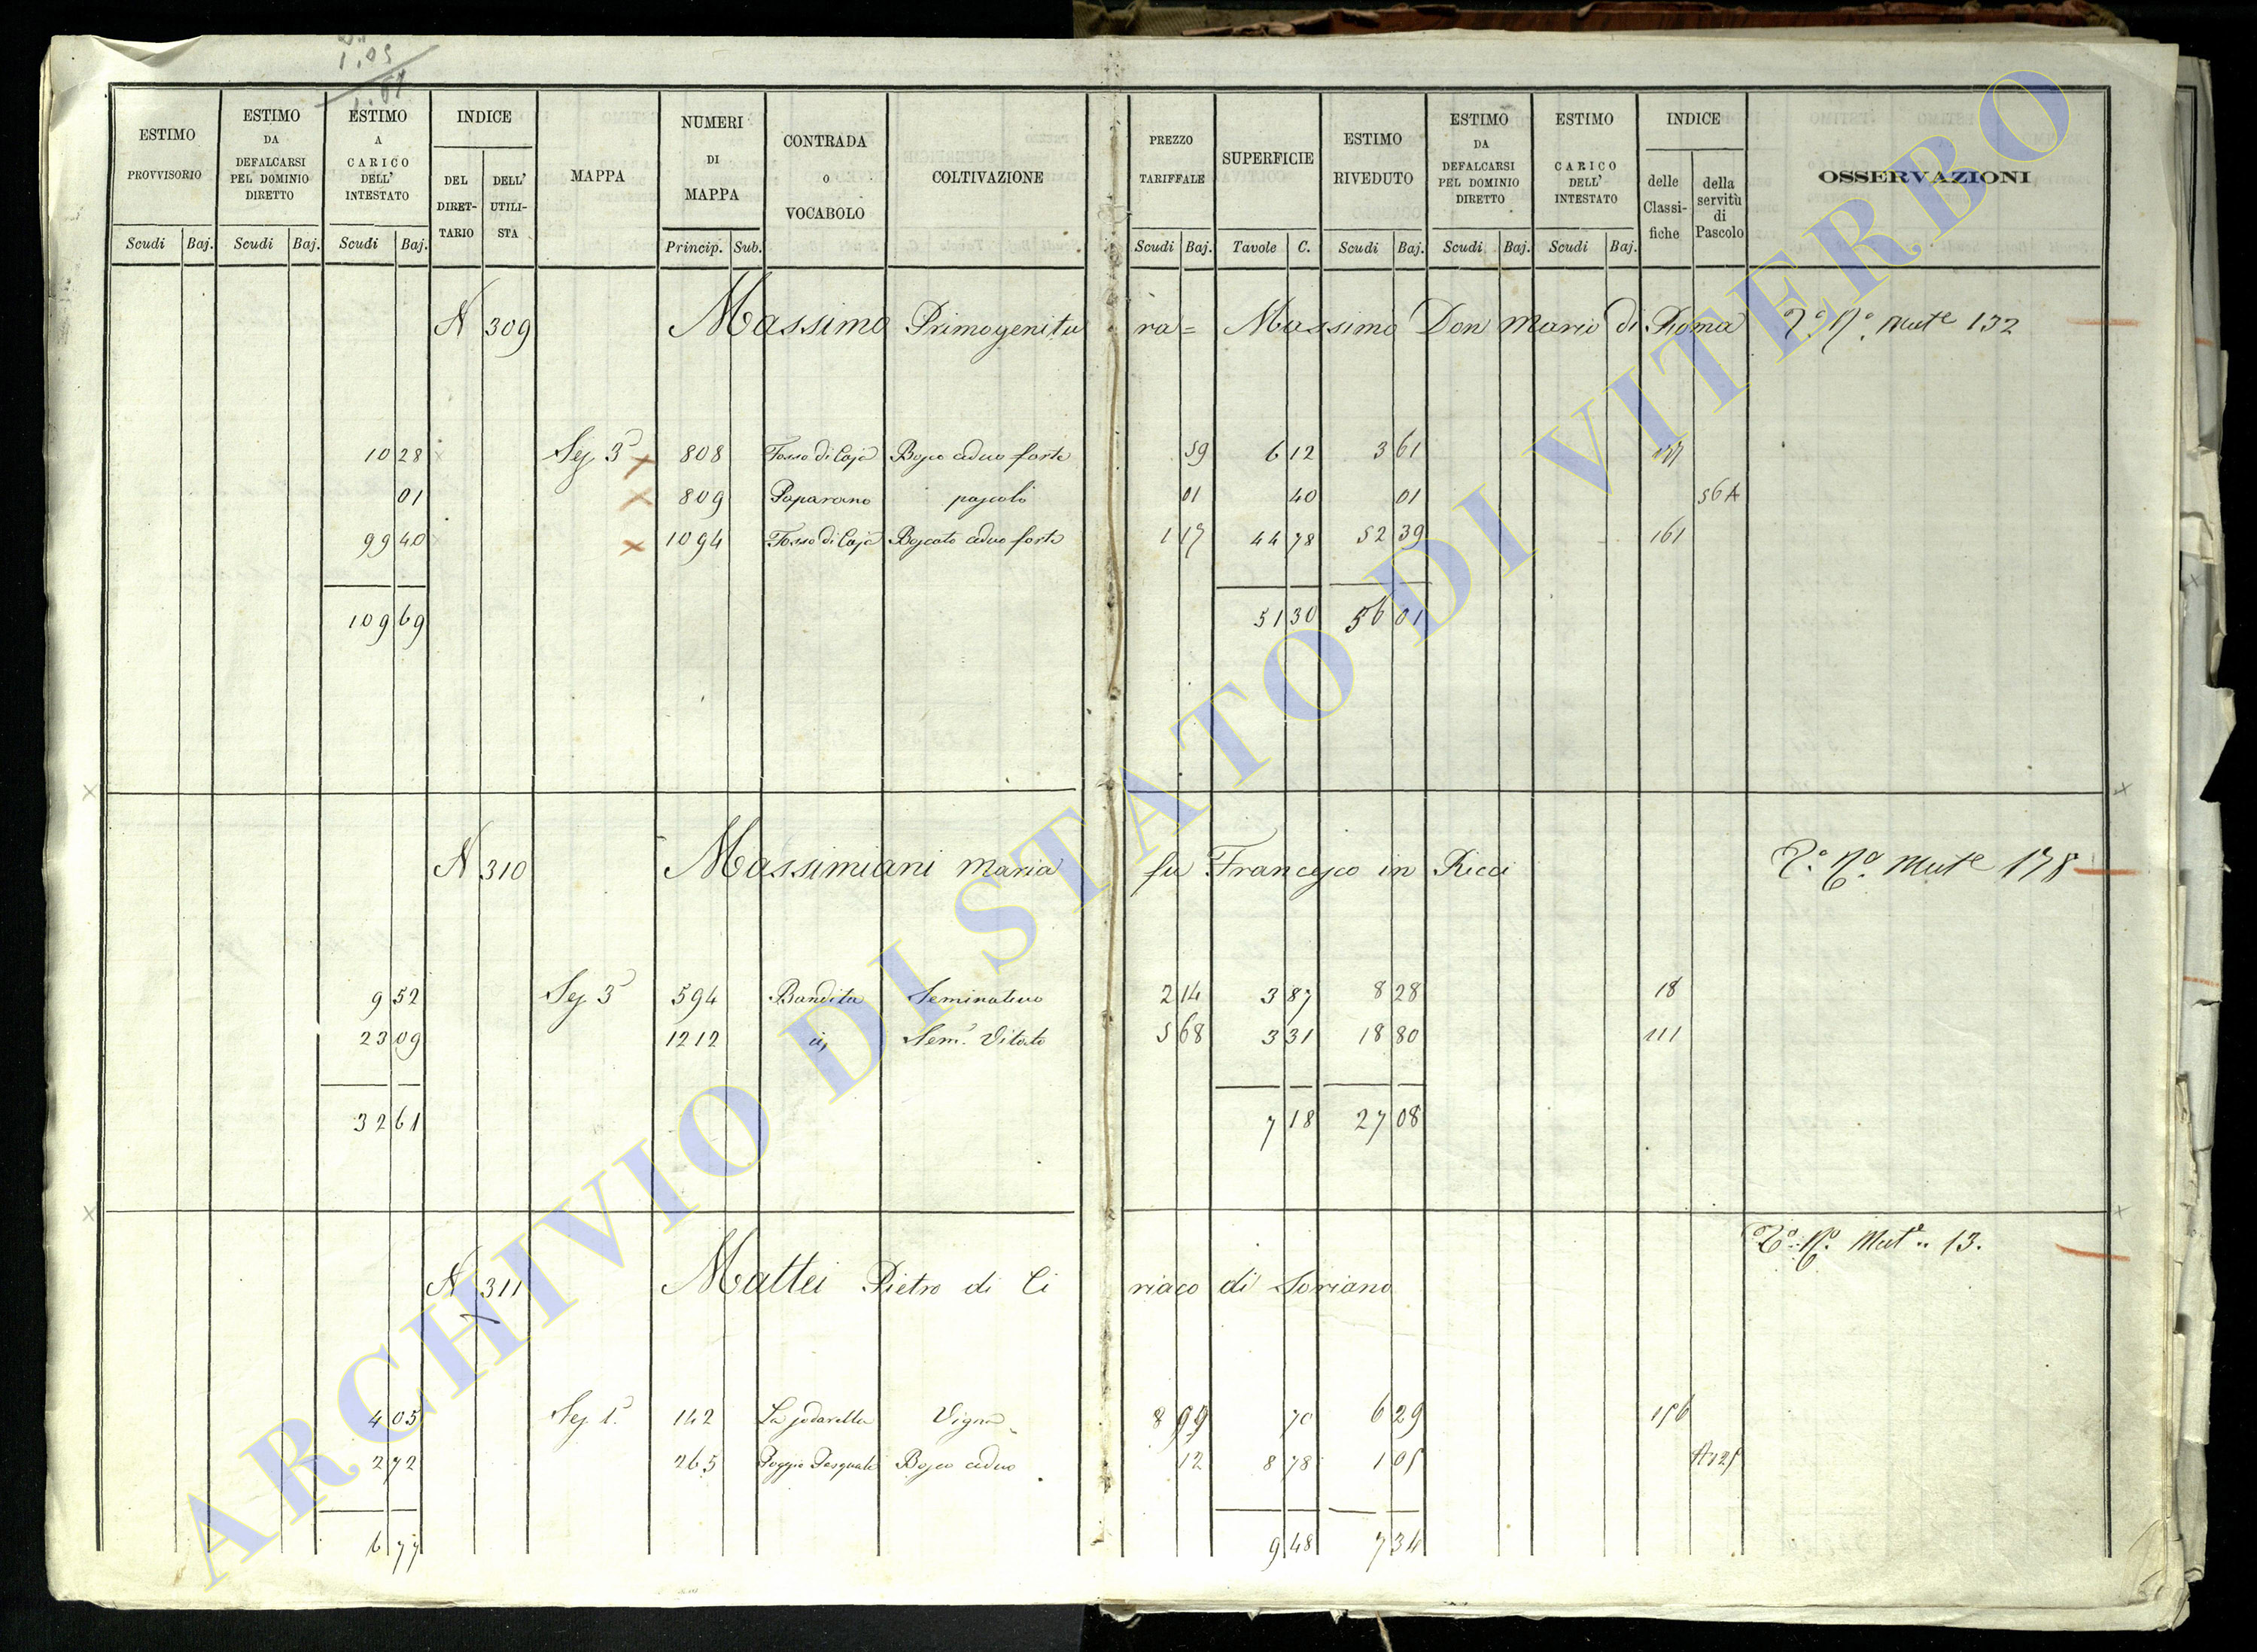 1.09
ESTIMO PROVVISORIO Scudi Baj.
ESTIMO DA DEFALCARSI PEL DOMINIO DIRETTO Scudi Baj.
ESTIMO A CARICO DELL' INTESTATO Scudi Baj.
INDICE DEL DIRET-TARIO DELL' UTILI-STA
MAPPA
NUMERI DI MAPPA Princip. Sub.
CONTRADA O VOCABOLO
COLTIVAZIONE
PREZZO TARIFFALE Scudi Baj.
SUPERFICIE Tavole C.
ESTIMO RIVEDUTO Scudi Baj.
ESTIMO DA DEFALCARSI PEL DOMINIO DIRETTO Scudi Baj.
ESTIMO CARICO DELL' INTESTATO Scudi Baj.
INDICE delle Classi-fiche della servitù di Pascolo
OSSERVAZIONI
N 309 Massimo Primogenitura = Massimo Don Mario di Roma Nº Mute 132
10 28 Sez 3ª 808 Fosso di Caja Bosco ceduo forte 59 6 12 3 61
01 809 Paparano pascolo 01 40 01 56 A
99 40 1094 Fosso di Caja Boscato ceduo forte 1 17 44 78 52 39 161
109 69 51 30 56 01
N 310 Massimiani Maria fu Francesco in Ricci Nº Mute 178
9 52 Sez 3ª 594 Bandita Seminativo 2 14 3 87 8 28 18
23 09 1212 Semº Vitato 5 68 3 31 18 80 111
32 61 7 18 27 08
N 311 Mattei Pietro di Ciriaco di Soriano Nº Mut 13.
4 05 Sez 1ª 142 Vigna 8 99 70 6 29 156
2 72 265 Poggio Pasquale Bosco ceduo 12 8 78 1 05
6 77 9 48 7 34
ARCHIVIO DI STATO DI VITERBO